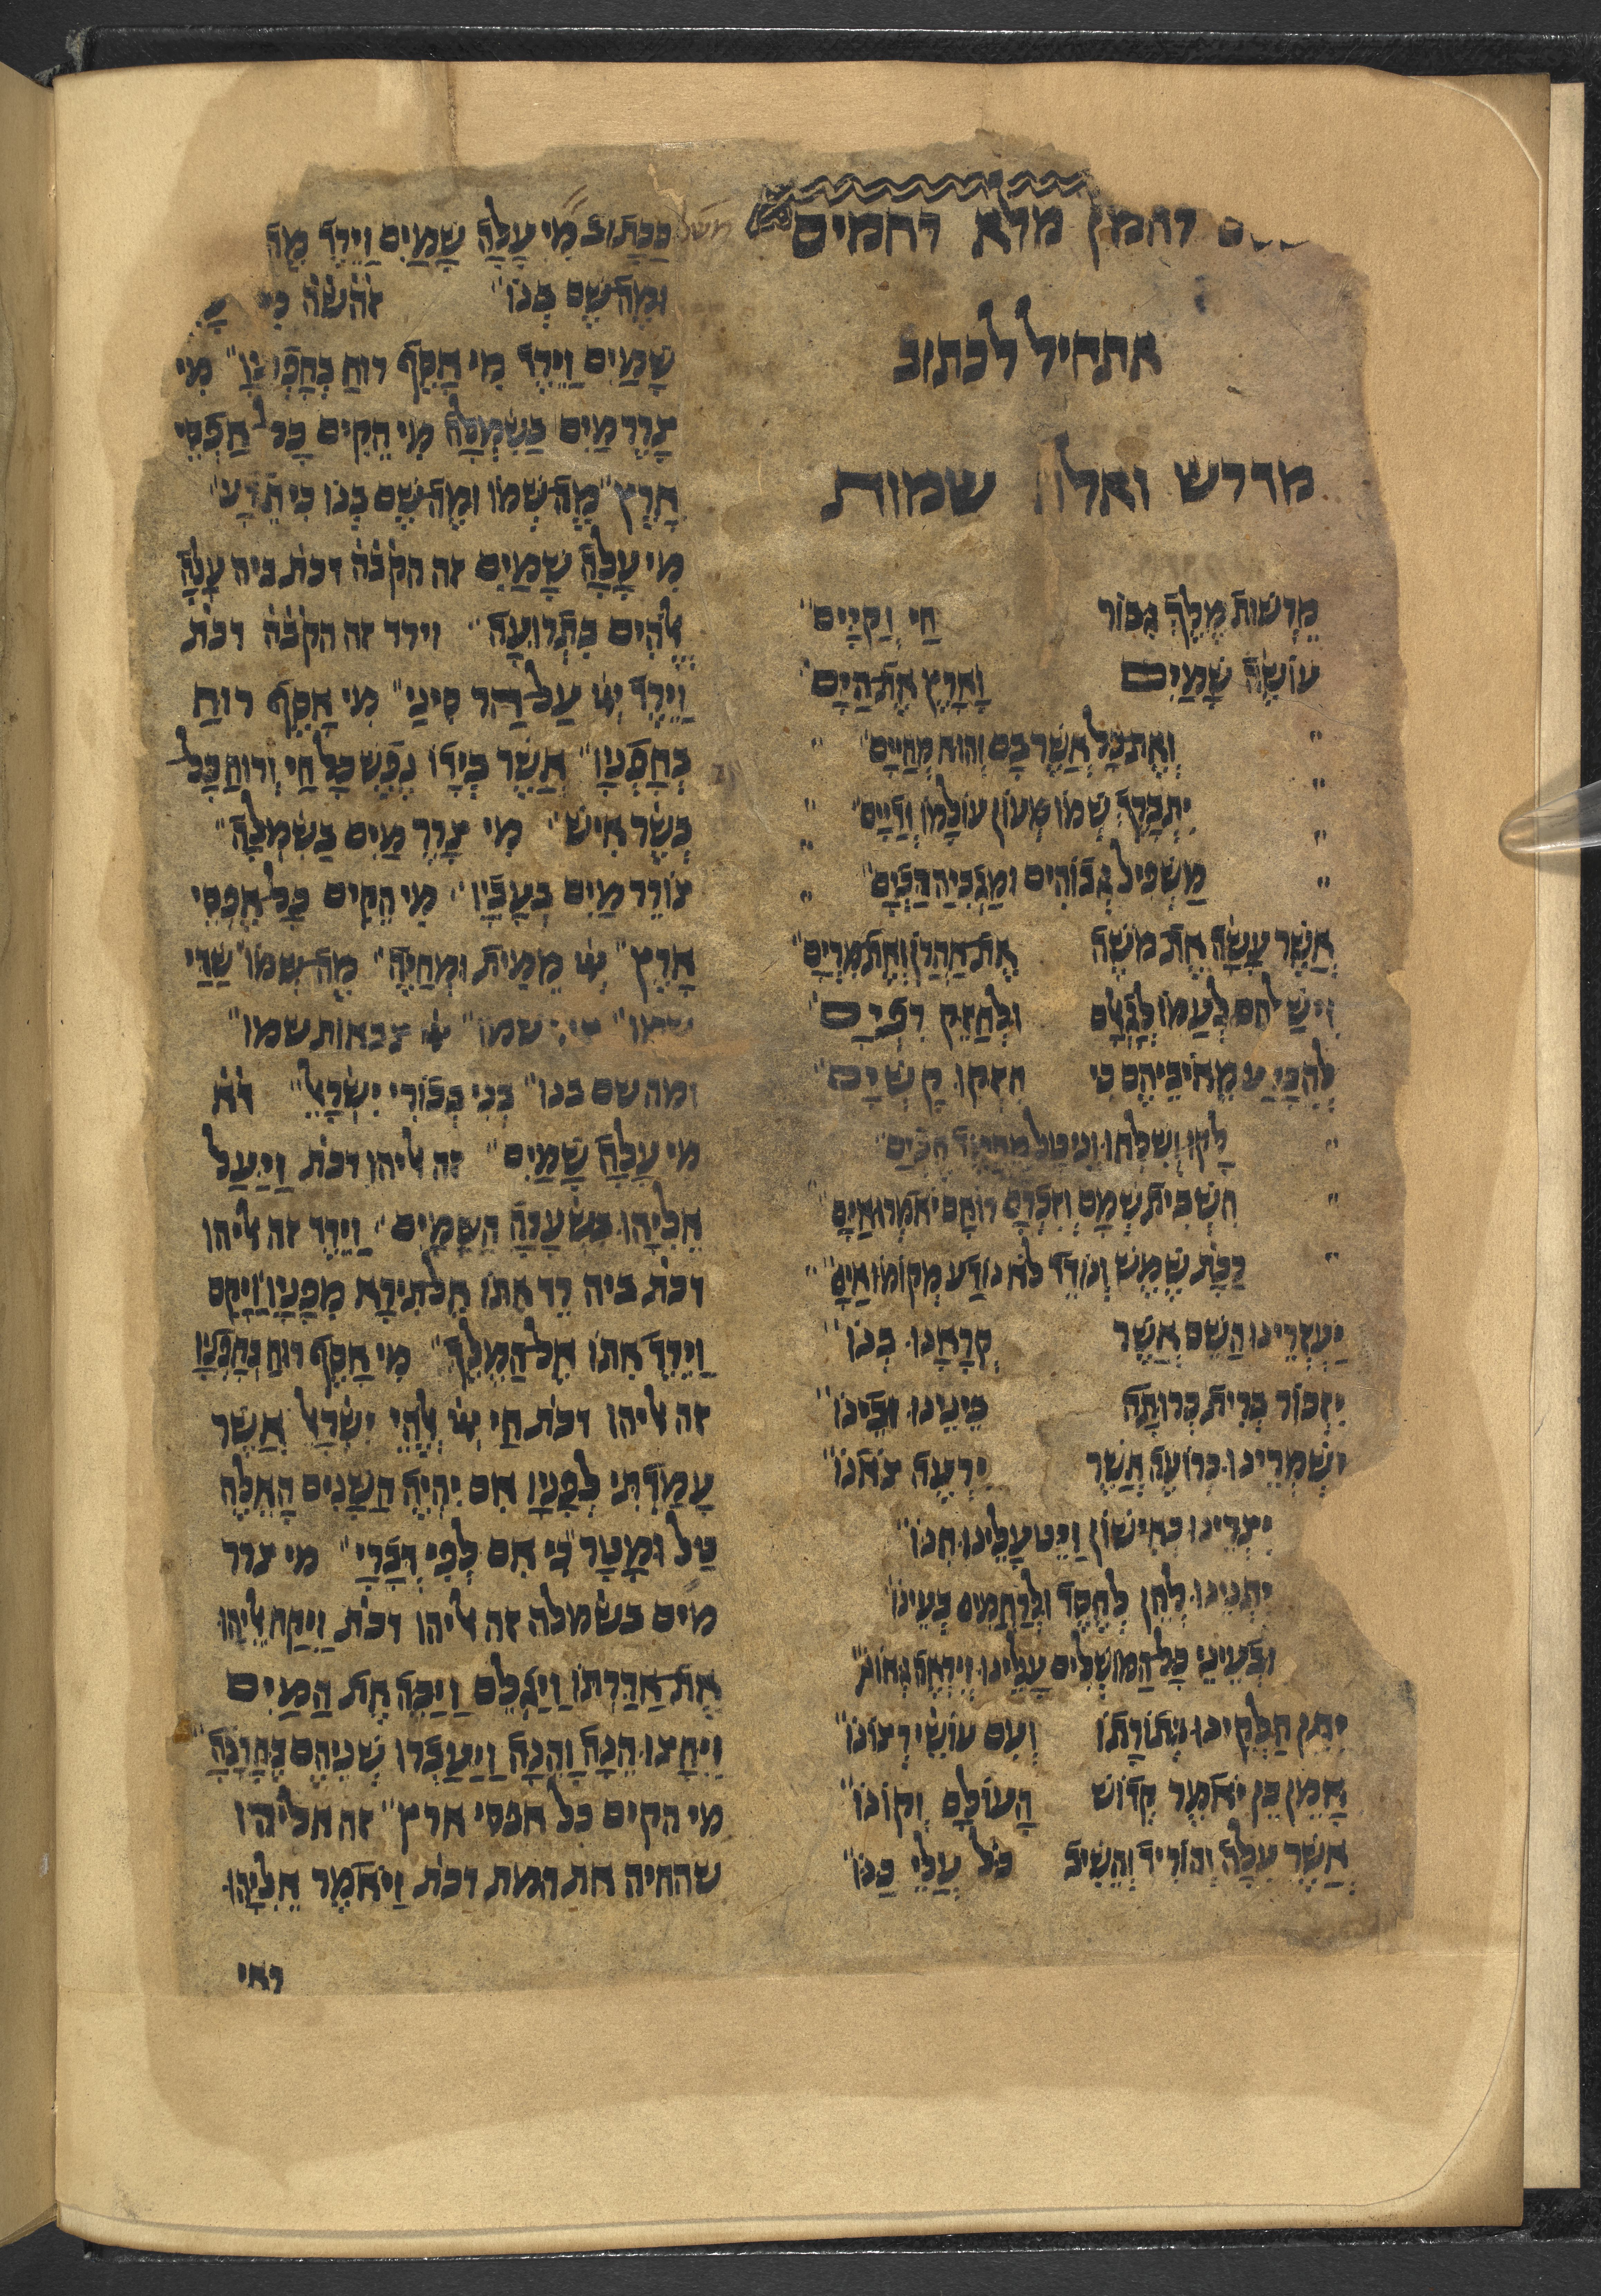 רחמן מלא רחמים
אתחיל לכתוב
מדרש ואלה שמות
מֵרְשׁוּת מֶלֶךְ גִּבּוֹר חַי וְקַיָּים
עוֹשֶׂה שָׁמַיִם וָאָרֶץ אֶת הַיָּם
וְאֶת כָּל אֲשֶׁר בָּם וְהוּא מְחַיִּים
יִתְבָּרֵךְ שְׁמוֹ
מַשְׁפִּיל גְּבוֹהִים וּמַגְבִּיהַּ
אֲשֶׁר עָשָׂה אֶת מֹשֶׁה אֶת אַהֲרֹן וְאֶת מִרְיָם
לְעַמּוֹ וּלְחַזֵּק
חִזְקוּ
שֶׁמֶשׁ וְנוֹדַד לֹא נוֹדַע מְקוֹמוֹ אַיָּם
יַעְזְרֵינוּ הַשֵּׁם אֲשֶׁר קְרָאָנוּ בְּנוֹ
יִזְכּוֹר בְּרִית כְּרוּתָה בֵּינֵינוּ וּבֵינוֹ
יִשְׁמְרֵינוּ כְּרוֹעֶה אֲשֶׁר יִרְעֶה צֹאנוֹ
יִצְרֵינוּ כְּאִישׁוֹן וְיֵט עָלֵינוּ חִנּוֹ
יִתְּנֵינוּ לְחֵן לְחֶסֶד וּלְרַחֲמִים בְּעֵינוֹ
וּבְעֵינֵי כָּל הַמּוֹשְׁלִים עָלֵינוּ
יִתֵּן חֶלְקֵינוּ בְּתוֹרָתוֹ וְעִם עוֹשֵׂי רְצוֹנוֹ
אָמֵן כֵּן יֹאמֶר קְדוֹשׁ הָעוֹלָם וְקוֹנוֹ
אֲשֶׁר עָלָה וְהוֹרִיד וְהֵשִׁיב כֹּל עֲלֵי כַנּוֹ
כַּכָּתוּב מִי עָלָה שָׁמַיִם וַיֵּרַד מַה
וּמַה שֶּׁם בְּנוֹ זה̇ש̇ה̇ מִי
שָׁמַיִם וַיֵּרַד מִי אָסַף רוּחַ בְּחָפְנָיו מִי
צָרַר מַיִם בַּשִּׂמְלָה מִי הֵקִים כָּל אַפְסֵי
אָרֶץ מַה שְּׁמוֹ וּמַה שֶּׁם בְּנוֹ כִּי תֵדָע
מִי עָלָה שָׁמַיִם זה הקבה דכת ביה עָלָה
אלהִים בִּתְרוּעָה וירד זה הקבה דכת
וַיֵּרֶד יי עַל הַר סִינַי מִי אָסַף רוּחַ
בְּחָפְנָיו אֲשֶׁר בְּיָדוֹ נֶפֶשׁ כָּל חַי וְרוּחַ כָּל
בְּשַׂר אִישׁ מִי צָרַר מַיִם בַּשִּׂמְלָה
צוֹרֵר מַיִם בְּעָבָיו מִי הֵקִים כָּל אַפְסֵי
אָרֶץ יי מֵמִית וּמְחַיֶּה מַה שְּׁמוֹ שַׁדַּי
שמו שמו יי צבאות שמו
ומה שם בנו בְּנִי בְכוֹרִי יִשְׂרָאֵל דא
מִי עָלָה שָׁמַיִם זה אליהו דכת וַיַּעַל
אֵלִיָּהוּ בַּסְעָרָה הַשָּׁמַיִם וַיֵּרַד זה אליהו
דכת ביה רֵד אִתּוֹ אַל תִּירָא מִפָּנָיו וַיָּקָם
וַיֵּרֶד אִתּוֹ אֶל הַמֶּלֶךְ מִי אָסַף רוּחַ בְּחָפְנָיו
זה אליהו דכת חַי יי אֱלֹהֵי יִשְׂרָאֵל אֲשֶׁר
עָמַדְתִּי לְפָנָיו אִם יִהְיֶה הַשָּׁנִים הָאֵלֶּה
טַל וּמָטָר כִּי אִם לְפִי דְבָרִי מי צרר
מים בשמלה זה אליהו דכת וַיִּקַּח אֵלִיָּהוּ
אֶת אַדַּרְתּוֹ וַיִּגְלֹם וַיַּכֶּה אֶת הַמַּיִם
וַיֵּחָצוּ הֵנָּה וָהֵנָּה וַיַּעַבְרוּ שְׁנֵיהֶם בֶּחָרָבָה
מי הקים כל אפסי ארץ זה אליהו
שהחיה את המת דכת וַיֹּאמֶר אֵלִיָּהוּ
ראי